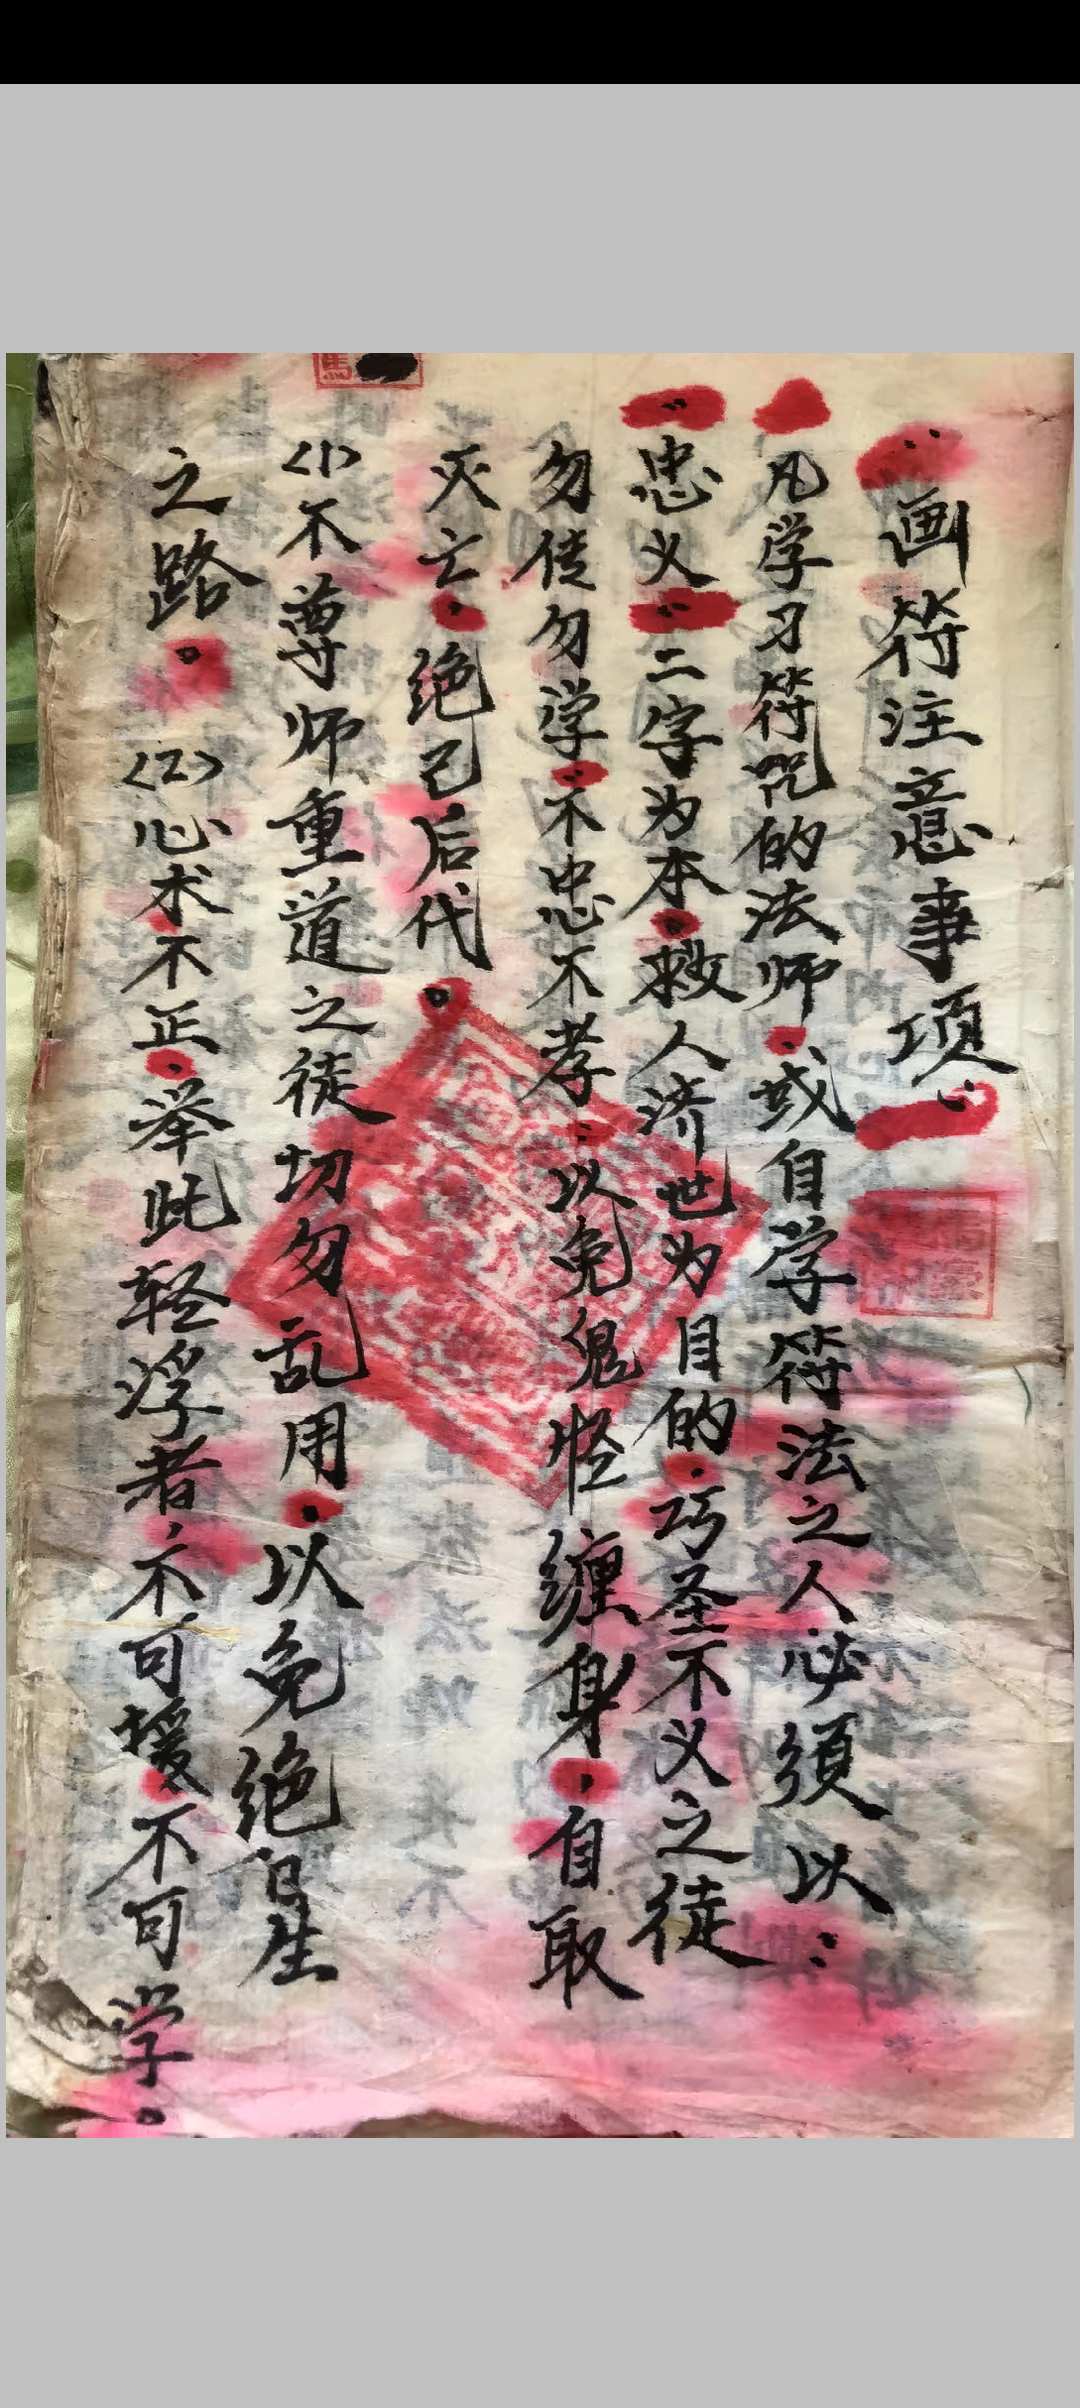 画符注意事项：
凡学习符咒的法师，或自学符法之人必须以：
“忠义”二字为本，救人济世为目的，巧圣不义之徒
勿传勿学，不忠不孝：以免鬼怪缠身，自取
灭亡，绝己后代。
<1>不尊师重道之徒切勿乱用，以免绝自生
之路。<2>心术不正，举此轻浮者、不可援不可学。